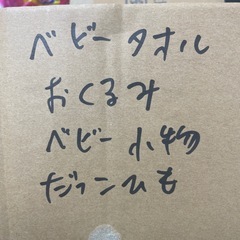 ベビータオル
おくるみ
ベビー小物
だっこひも